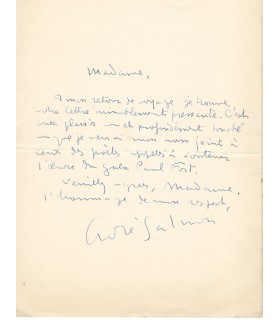 Madame,
A mon retour de voyage je trouve
votre lettre aimablement pressante. C'est
avec plaisir — et profondément touché
— que je verrai mon nom joint à
ceux des poètes appelés à soutenir
l'œuvre du Gala Paul Fort.
Veuillez agréer, Madame,
l'hommage de mon respect,
André Salmon